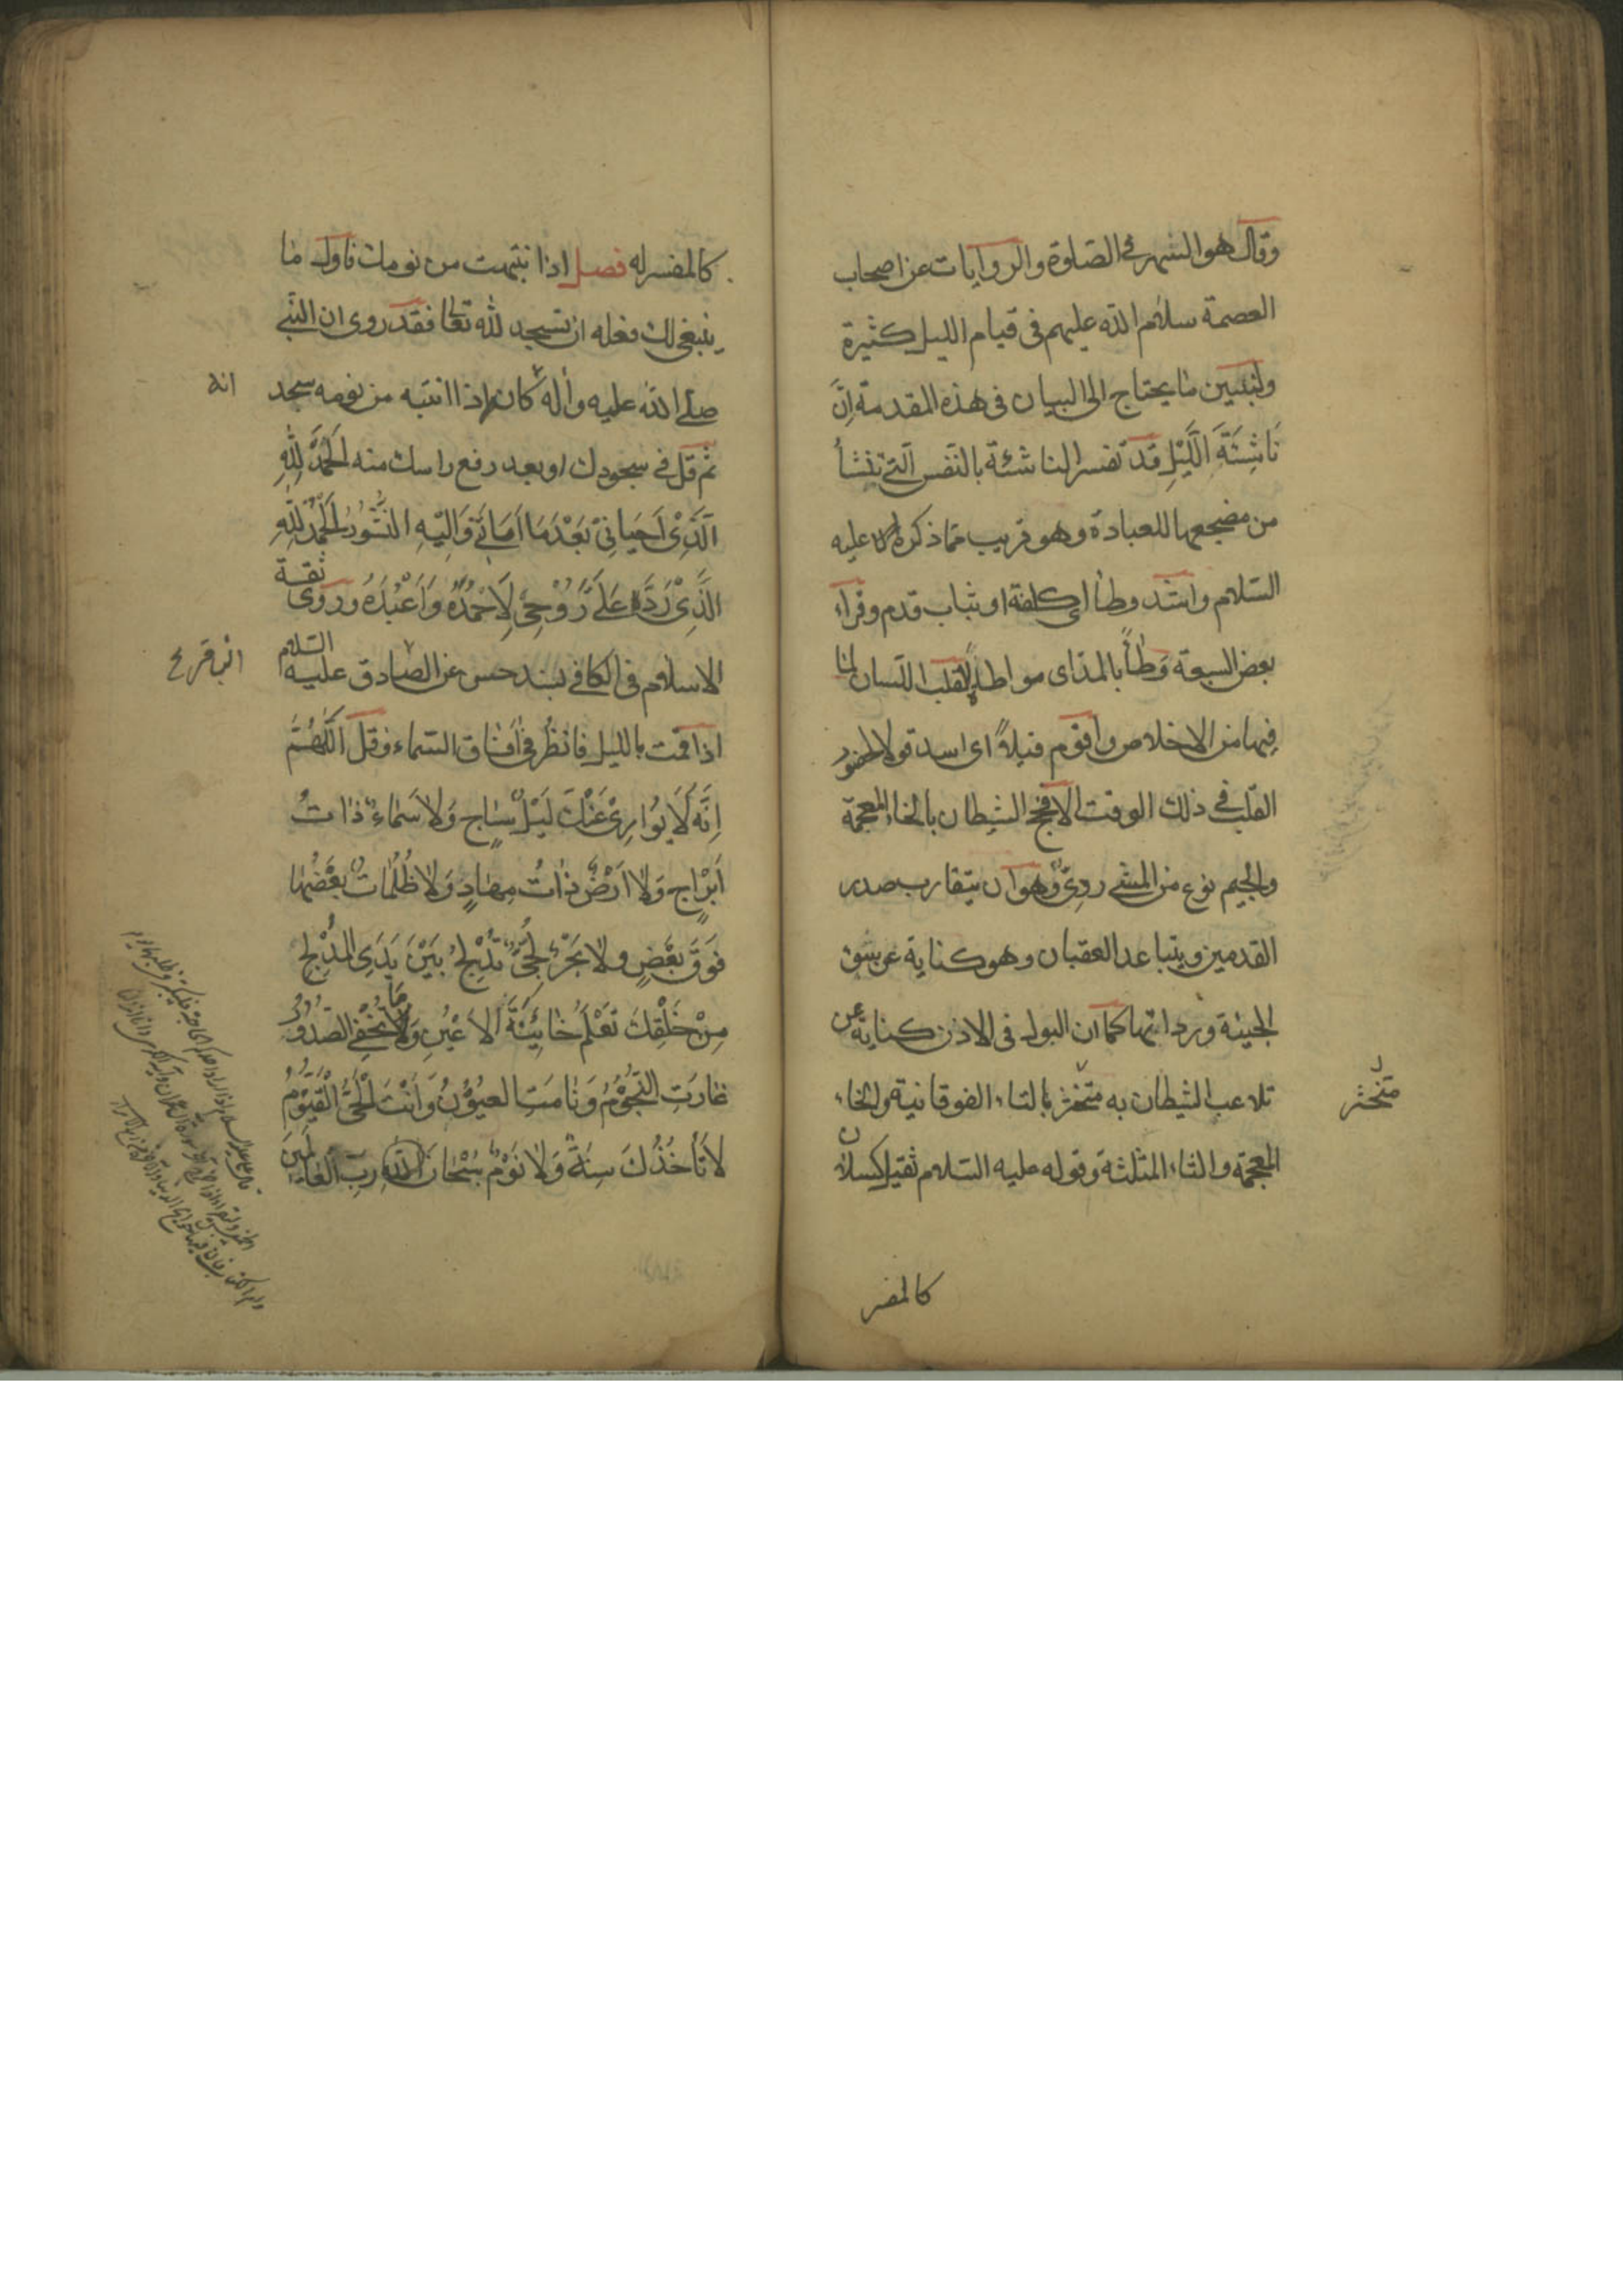 وقال هو السهر في الصلوة والروايات عن اصحاب
العصمة سلام الله عليهم في قيام الليل كثيرة
ولنبين ما يحتاج الى البيان في هذه المقدمة اِنَّ
نَاشِئَةَ الَّليْلِ قد تفسر الناشئة بالنفس التي تنشأ
من مضجعها للعبادة وهو قريب مما ذكره عليه
السلام واشد وطأ اى كلفة او ثبات قدم وقراء
بعض السبعة وَطأً بالمد اى مواطاة القلب اللسان لما
فيها من الاخلاص واقوم قيلاً اى اسد قولا لحضور
القلب في ذلك الوقت الا فحج الشيطان بالخاء المعجمة
والجيم نوع من المشى روىّ وهو ان يتقارب صدر
القدمين ويتباعد العقبان وهو كناية عن سوء
الجيئة وردائتها كما ان البول في الاذن كناية عن
تلاعب الشيطان به متخثر بالتاء الفوقانية والخاء
متخثر
المعجمة والثاء المثلثة وقوله عليه السلام ثقيل كسلان
كالمفسر
كالمفسر له فصل اذا انتبهت من نومك فاول ما
ينبغى لك فعله ان تسجد لله تعالى فقد روى ان النبي
صلى الله عليه وآله كان اذا انتبه من نومه سجد
انه
ثم قل في سجودك او بعد رفع راسك منه اَلْحَمْدُ لِلّٰهِ
الَّذِىْ اَحْيَانِىْ بَعْدَ مَا اَمَاتَنِىْ وَاِلَيْهِ النُّشُورُ اَلْحَمْدُ لِلّٰهِ
الَّذِىْ رَدَّ عَلَىَّ رُوْحِىْ لِاَحْمَدَهُ وَاَعْبُدَهُ وروى ثقة
الاسلام في الكافي بسند حسن عن الصادق عليه السلام
اذا قمت بالليل فانظر في آفاق السماء وقل اَللّٰهُمَّ
اِنَّهُ لَا يُوَارِىْ عَنْكَ لَيْلٌ سَاجٍ وَلَا سَمَاءٌ ذَاتُ
اَبْرَاجٍ وَلَا اَرْضٌ ذَاتُ مِهَادٍ وَلَا ظُلُمَاتٌ بَعْضُهَا
فَوْقَ بَعْضٍ وَلَا بَحْرٌ لُجِّىٌّ تُدْلِجُ بَيْنَ يَدَىِ الْمُدْلِجِ
مِنْ خَلْقِكَ تَعْلَمُ خَائِنَةَ الْاَعْيُنِ وَمَا تُخْفِى الصُّدُوْرُ
غَارَتِ النُّجُوْمُ وَنَامَتِ العُيُوْنُ وَاَنْتَ الْحَىُّ الْقَيُّوْمُ
لَا تَأخُذُكَ سِنَةٌ وَلَا نَوْمٌ سُبْحَانَ اللّٰهِ رَبِّ الْعَالَمِيْنَ